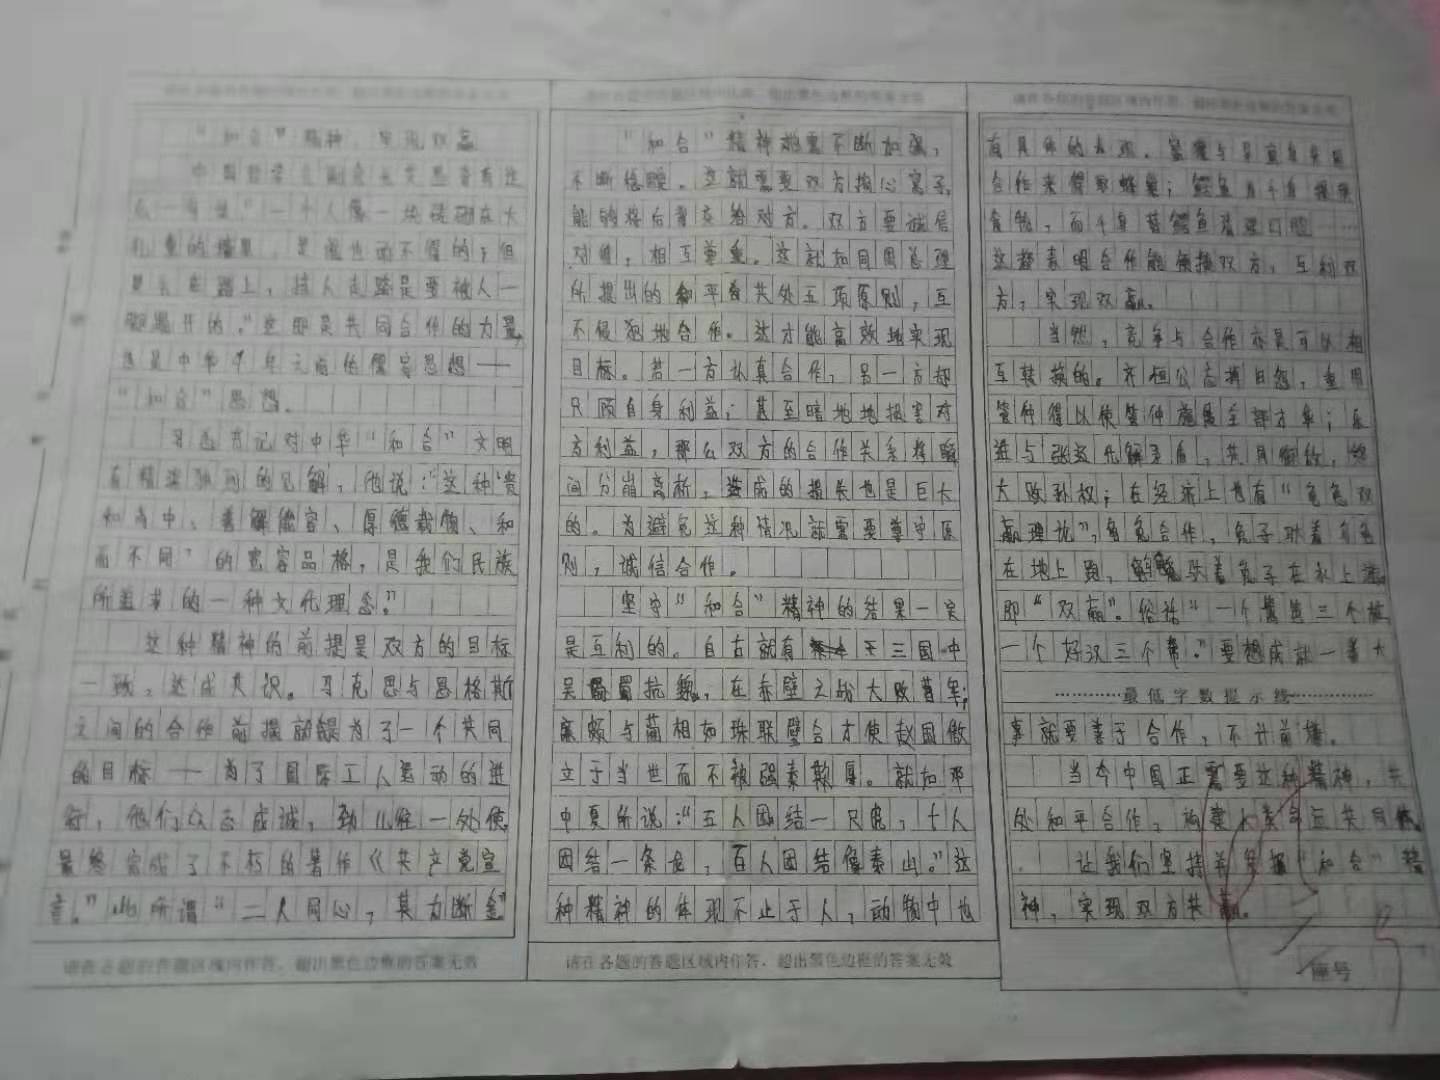 "和合"精神,实现双赢
中国哲学
么一句话"一个人像一块砖砌在大
礼堂的墙里,是谁也动不得的;但
是丢在路上,挡人走路是要被人一
脚踢开的。"这即是共同合作的力量,
"和合"思想。
习总书记对中华"和合"文明
有精深独到的见解,他说:"这种'贵
和尚中、善解能容、厚德载物、和
而不同'的宽容品格,是我们民族
所追求的一种文化理念。"
这种精神的前提是双方的目标
一致,达成共识。马克思与恩格斯
之间的合作前提就是为了一个共同
的目标——为了国际工人运动的进
行,他们众志成诚,劲儿往一处使,
最终完成了不朽的著作《共产党宣
言。"此所谓"二人同心,其力断金"
"和合"精神需要不断加强,
不断
能够将后背交给对方。双方要诚信
对难,相互尊重。这就如同周总理
所提出的和平共处五项原则,互
不侵犯地合作。这才能高效地实现
目标。若一方认真合作,另一方却
只顾自身利益;甚至暗地地损害对
方利益,那么双方的合作关系将瞬
间分崩离析,造成的损失也是巨大
的。为避免这种情况就需要尊守原
则,诚信合作。
坚守"和合"精神的结果一定
是互利的。自古就有 三国中
吴蜀抗魏,在赤壁之战大败曹军;
廉颇与蔺相如珠联璧合才使赵国傲
立于当世而不被强秦欺辱。就如邓
中夏所说:"五人团结一只虎,十人
团结一条龙,百人团结像泰山。"这
种精神的体现不止于人,动物中也
有具体的表现。蜜獾与导蜜鸟互相
合作来得取蜂巢;鳄鱼为千鸟提供
食物,而千鸟替鳄鱼清理口腔……
这都表明合作能使双方,互利双
方,实现双赢。
当然,竞争与合作亦是可以相
互转换的。齐桓公忘掉旧怨,重用
管仲得以使管仲施展全部才华;乐
进与张辽化解矛盾,共同御敌,终
大败孙权;在经济上也有"龟兔双
赢理论",龟兔合作,兔子驮着乌龟
在地上跑,乌龟驮着兔子在水上游。
即"双赢"。俗话"一个篱笆三个桩,
一个好汉三个帮。"要想成就一番大
············最低字数提示线············
事就要善于合作,不计前嫌。
当今中国正需要这种精神,共
处和平合作,构建人类命运共同体。
让我们坚持并掌握"和合"精
神,实现双方共赢。
请在各题的答题区域内作答,超出黑色边框的答案无效
请在各题的答题区域内作答,超出黑色边框的答案无效
座号